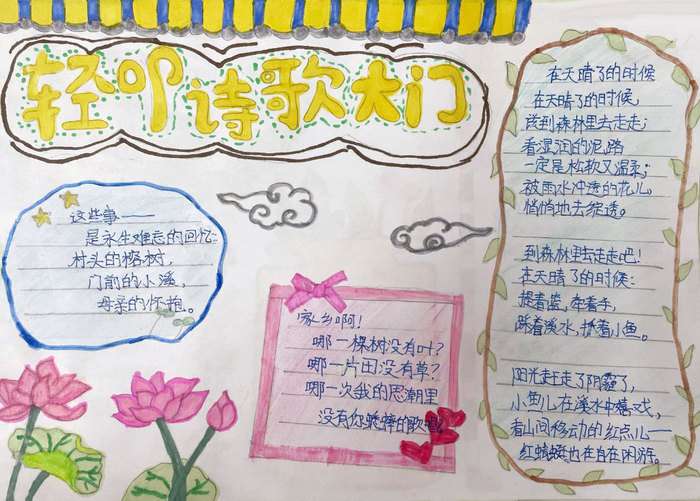 轻叩诗歌大门
这些事——
是永生难忘的回忆:
村头的榕树,
门前的小溪,
母亲的怀抱。
家乡啊!
哪一棵树没有叶?
哪一片田没有草?
哪一次我的思潮里
没有你蟋蟀的歌唱
在天晴了的时候
在天晴了的时候,
该到森林里去走走;
看湿润的泥路
一定是松软又温柔;
被雨水冲透的花儿,
悄悄地去绽透。
到森林里去走走吧!
在天晴了的时候:
提着篮,牵着手,
踩着溪水,拨着小鱼。
阳光赶走了阴霾了,
小鱼儿在溪水中嬉戏,
看山间移动的红点儿——
红蜻蜓也在自在闲游。